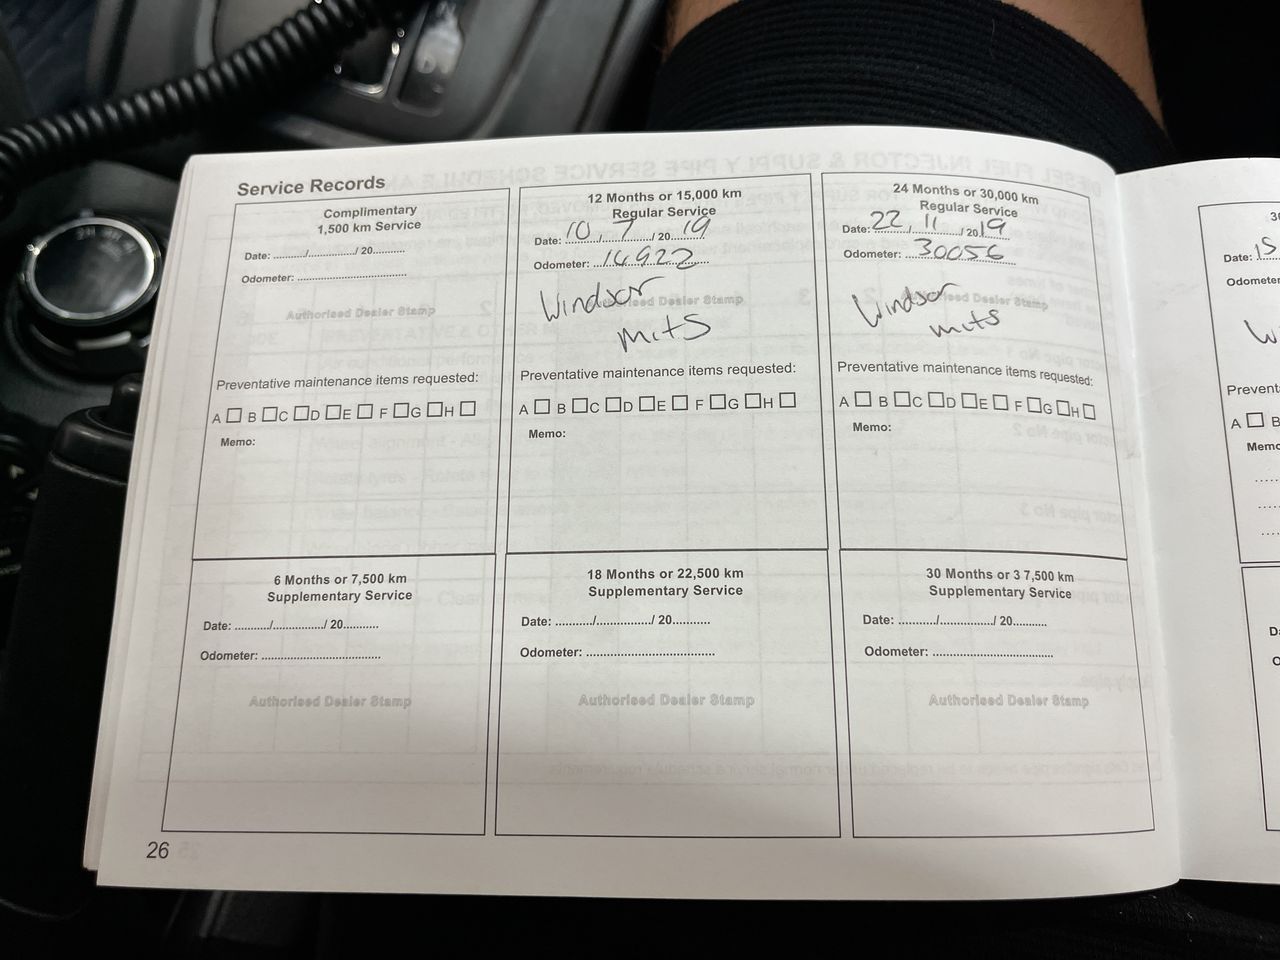 Service Records
Complimentary
1,500 km Service
Date: ........../............../ 20...........
Odometer: ......................................
Authorised Dealer Stamp
Preventative maintenance items requested:
A □ B □ C □ D □ E □ F □ G □ H □
Memo:
12 Months or 15,000 km
Regular Service
Date: 10 / 7 / 2019
Odometer: 14922
Authorised Dealer Stamp
Windsor
mits
Preventative maintenance items requested:
A □ B □ C □ D □ E □ F □ G □ H □
Memo:
24 Months or 30,000 km
Regular Service
Date: 22 / 11 / 2019
Odometer: 30056
Authorised Dealer Stamp
Windsor
mits
Preventative maintenance items requested:
A □ B □ C □ D □ E □ F □ G □ H □
Memo:
6 Months or 7,500 km
Supplementary Service
Date: ........../............../ 20...........
Odometer: ......................................
Authorised Dealer Stamp
18 Months or 22,500 km
Supplementary Service
Date: ........../............../ 20...........
Odometer: ......................................
Authorised Dealer Stamp
30 Months or 3 7,500 km
Supplementary Service
Date: ........../............../ 20...........
Odometer: ......................................
Authorised Dealer Stamp
26
Date: 15
A □ B